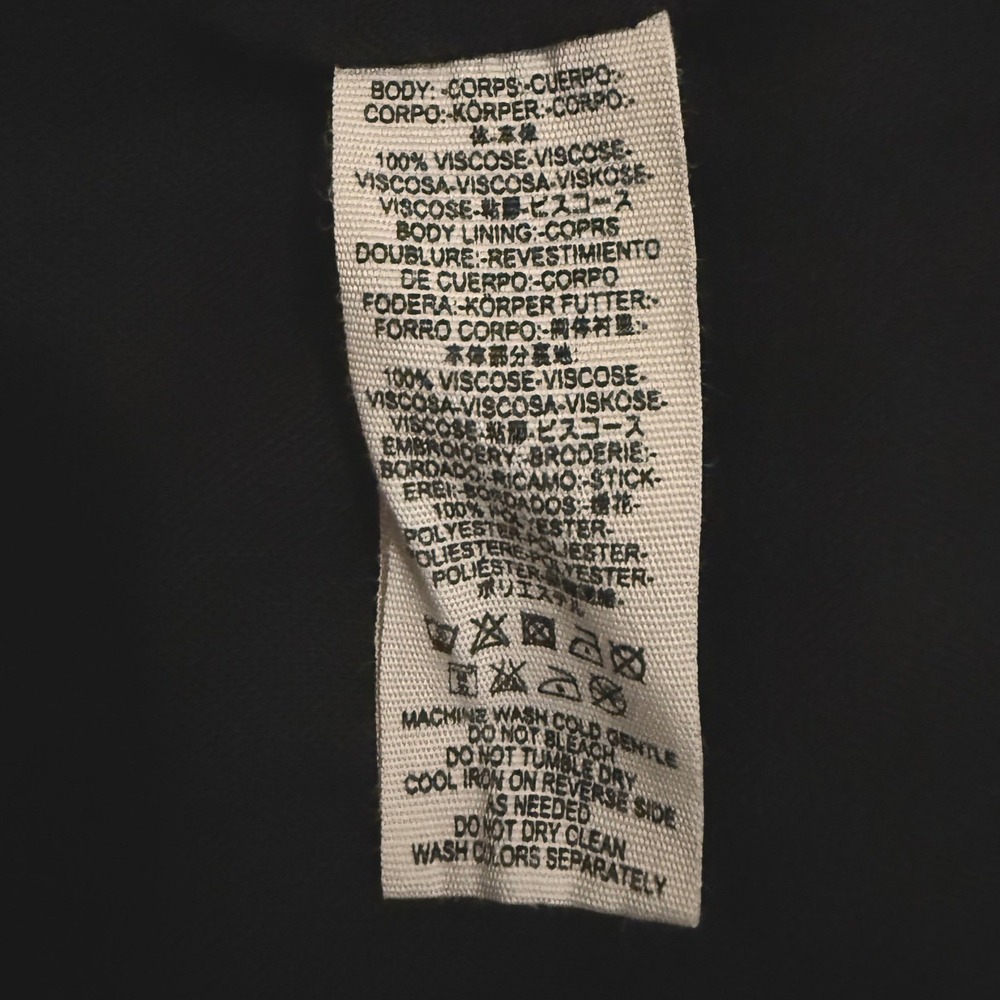 BODY:-CORPS:-CUERPO:-
CORPO:-KÖRPER:-CORPO:-
体-本体
100% VISCOSE-VISCOSE-
VISCOSA-VISCOSA-VISKOSE-
VISCOSE-粘膠-ビスコース
BODY LINING:-COPRS
DOUBLURE:-REVESTIMIENTO
DE CUERPO:-CORPO
FODERA:-KÖRPER FUTTER:-
FORRO CORPO:-
本体部分裏地:
100% VISCOSE-VISCOSE-
VISCOSA-VISCOSA-VISKOSE-
VISCOSE-粘膠-ビスコース
EMBROIDERY:-BRODERIE:-
BORDADO:-RICAMO:-STICK-
EREI:-BORDADOS:-繡花-
100%
POLYESTER-
POLIESTERE-POLIESTER-
POLIÉSTER-
ポリエステル
MACHINE WASH COLD GENTLE
DO NOT BLEACH
DO NOT TUMBLE DRY
COOL IRON ON REVERSE SIDE
AS NEEDED
DO NOT DRY CLEAN
WASH COLORS SEPARATELY